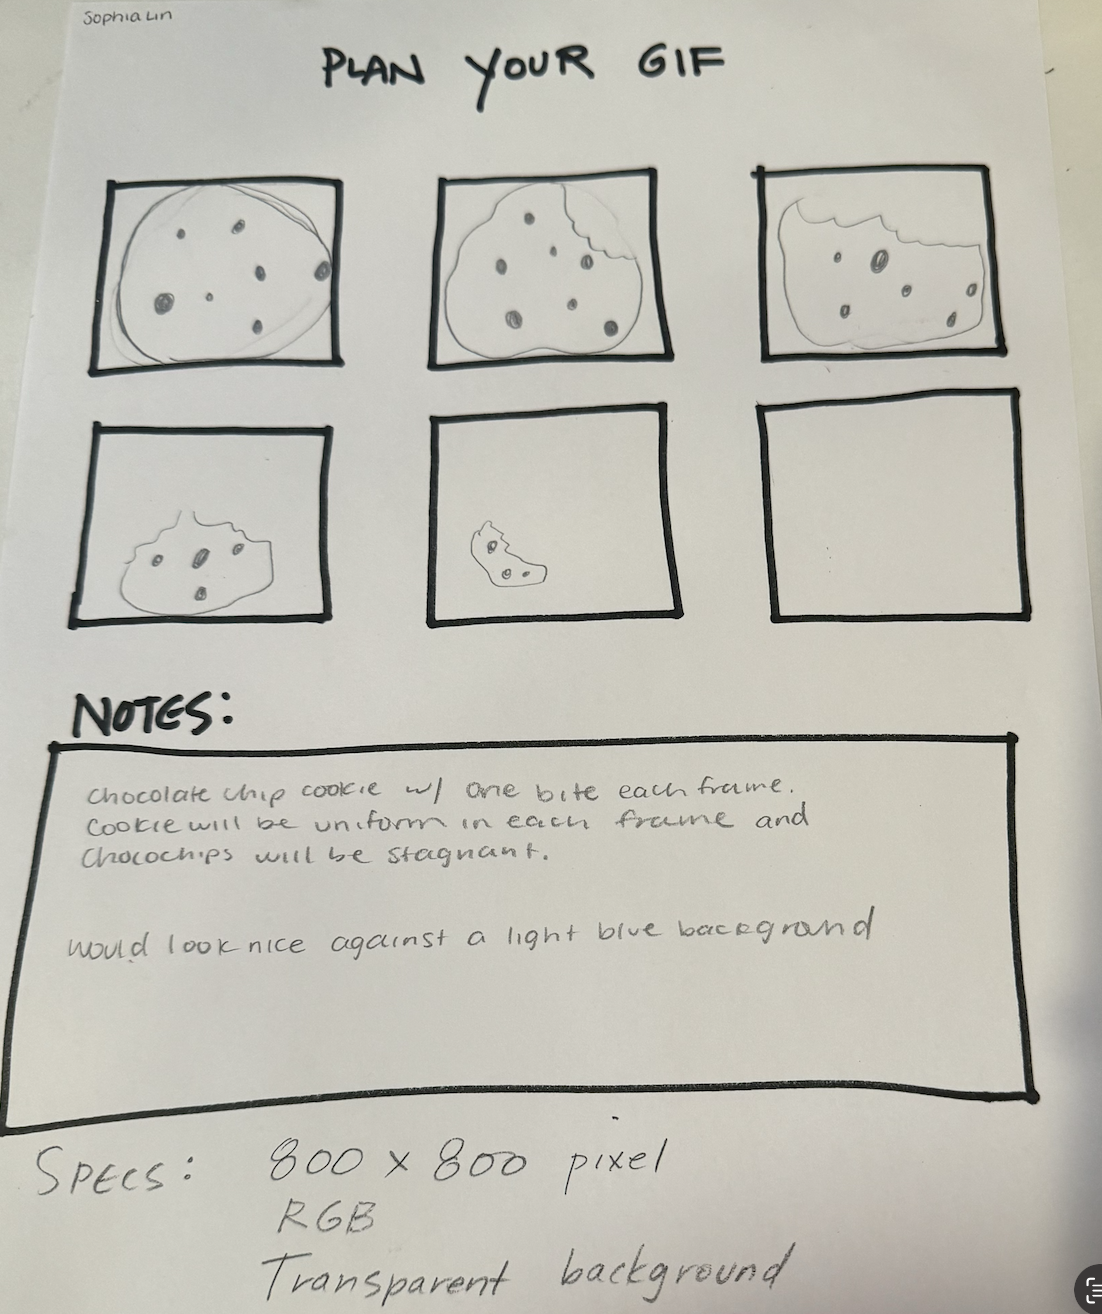 Sophia Lin
PLAN YOUR GIF
NOTES:
chocolate chip cookie w/ one bite each frame.
Cookie will be uniform in each frame and
Chocochips will be stagnant.
would look nice against a light blue backgrand
SPECS: 800 x 800 pixel
RGB
Transparent background